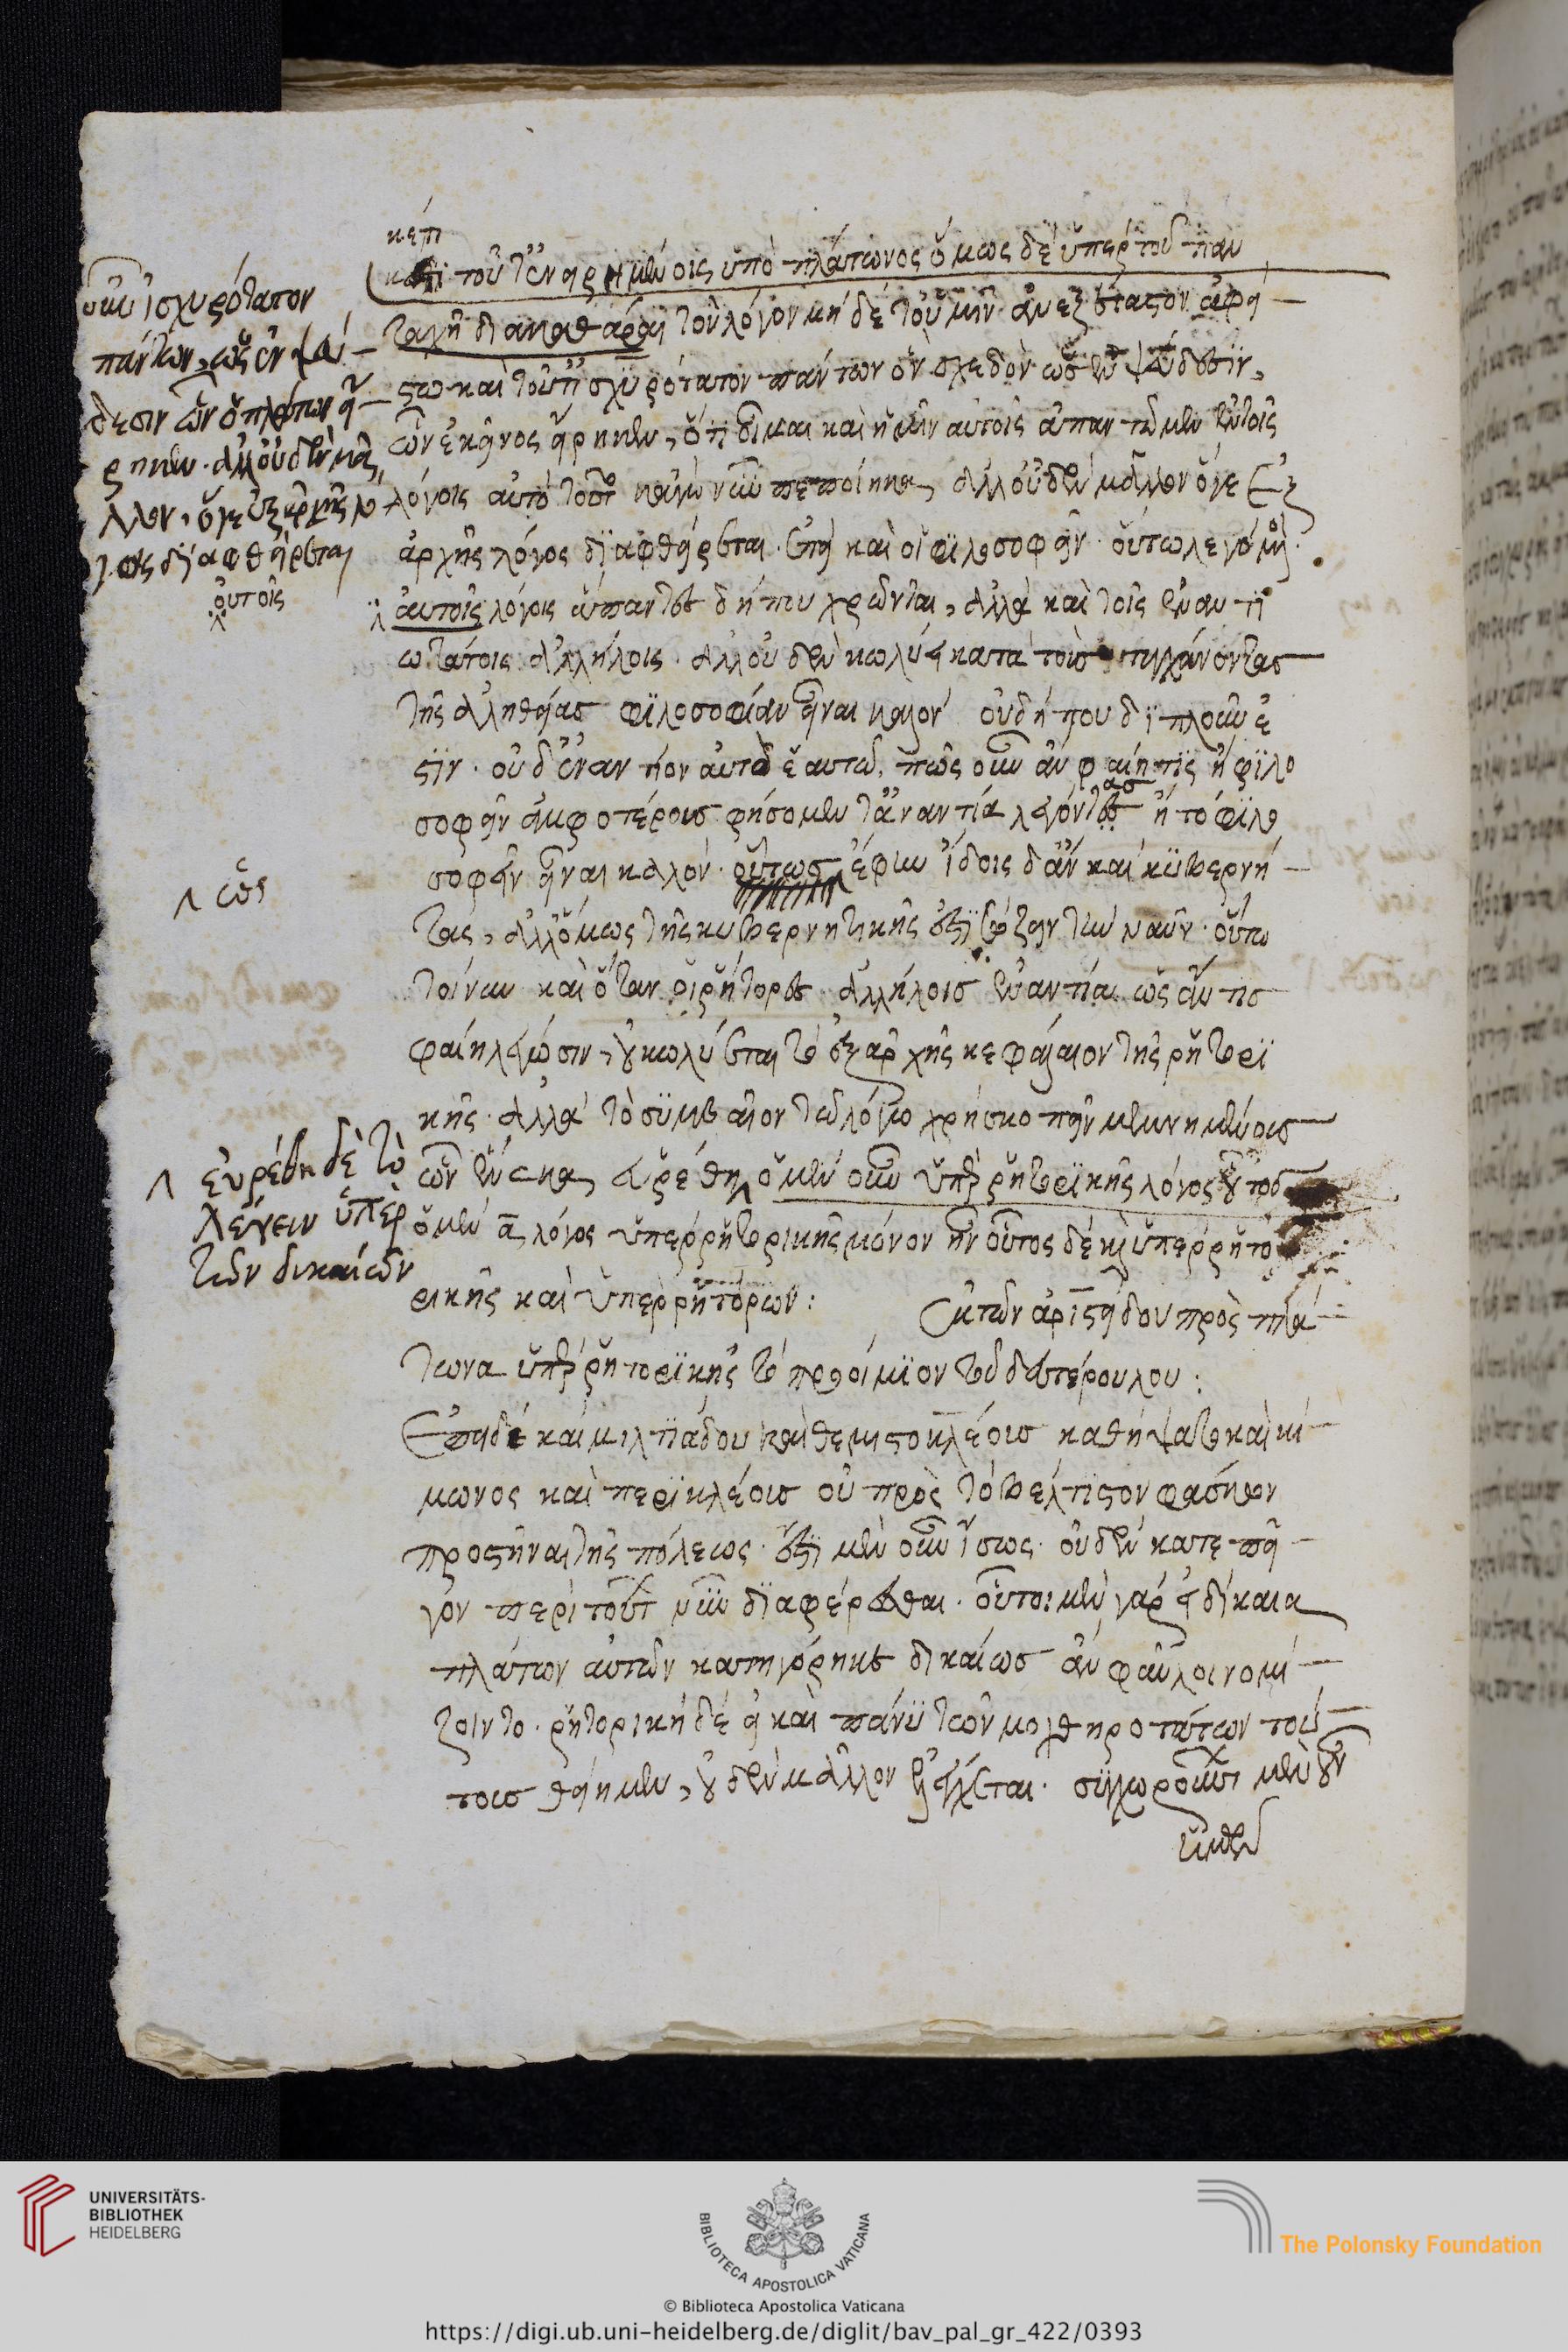 κἀπὶ
κἀπὶ τοῦτ' ἐν εἰρημένοις ὑπὸ πλάτωνος ὅμως δὲ ὑπὲρ τοῦ παν
ταχῆ διακαθᾶραι τὸν λόγον μὴ δὲ τοῦθ' ἡμῖν ἀνεξέταστον ἀφεί
στω καὶ τοῦτ' ἰσχυρότατον πάντων ὂν σχεδὸν ὡς ἐν ψεύδεσιν,
ὧν ἐκεῖνος εἴρηκεν, ὅτι οἶμαι καὶ ἡμῖν αὐτοῖς ἅπαν τῶ μὲν ἐν τοῖς
λόγοις αὐτὸ τοῦτο κἀγὼ νῦν πεποίηκα, ἀλλ' οὐδὲν μᾶλλον ὅγε ἐξ
ἀρχῆς λόγος διαφθείρεται. ἐπεὶ καὶ οἱ φιλοσοφεῖν οὕτω λεγόμενοι
αὐτοῖς λόγοις ἅπαντες δήπου χρῶνται, ἀλλὰ καὶ τοῖς ἐναντι
ωτάτοις ἀλλήλοις. ἀλλ' οὐδὲν κωλύει κατὰ τοὺς τυγχάνοντας
τῆς ἀληθείας φιλοσοφίαν εἶναι καλόν οὐ δή που διπλοῦν ἐ
στιν. οὐδ' ἐναντίον αὐτὸ ἑαυτῶ. πῶς οὖν ἂν φαίη τις ἢ φιλο
σοφεῖν ἀμφοτέρους φήσομεν τἀναντία λέγοντας ἢ τὸ φιλο
σοφεῖν εἶναι καλόν. οὕτως ἔφην ἴδοις δ' ἂν καὶ κυβερνή
τας, ἀλλ' ὅμως τῆς κυβερνητικῆς ἐστὶ σώζειν τὴν ναῦν. οὕτω
τοίνυν καὶ ὅταν οἱ ῥήτορες ἀλλήλοις ἐναντία ὡς ἄν τις
φαίη λέγωσιν, οὐ κωλύεται τὸ ἐξ ἀρχῆς κεφάλαιον τῆς ῥητορι
κῆς. ἀλλὰ τὸ συμβαῖον τῶ λόγω χρὴ σκοπεῖν μεμνημένους
ὧν ἕνεκα εὑρέθη ὁ μὲν οὖν ὑπὲρ ῥητορικῆς λόγος οὗτος
ὁ μὲν α λόγος ὑπὲρ ῥητορικῆς μόνον ἦν οὗτος δὲ καὶ ὑπὲρ ῥητο
ρικῆς καὶ ὑπὲρ ῥητόρων: Ἐκ τῶν ἀριστείδου πρὸς πλά
τωνα ὑπὲρ ῥητορικῆς τὸ προοίμιον τοῦ δευτέρου λου:
Ἐπειδὲ καὶ μιλτιάδου καὶ θεμιστοκλέους καθήψατο καὶ κί
μωνος καὶ περικλέους οὐ πρὸς τὸ βέλτιστον φάσκων
προστῆναι τῆς πόλεως. ἔστι μὲν οὖν ἴσως. οὐδὲν κατεπεῖ
γον περὶ τούτου νῦν διαφέρεσθαι. οὗτοι μὲν γὰρ εἰ δίκαια
πλάτων αὐτῶν κατηγόρηκε δικαίως ἂν φαῦλοι νομί
ζοιντο. ῥητορικὴ δὲ εἰ καὶ πάνυ τῶν μοχθηροτάτων τού
τους θείημεν, οὐδὲν μᾶλλον ἐλέγχεται. συγχωροῦσι μὲν οὖν
οὖν ἰσχυρότατον
πάντων, ὡς ἐν ψεύ
δεσιν ὧν ὁ πλάτων εἴ
ρηκεν. ἀλλ' οὐδὲν μᾶ
λλον, ὅγε ἐξ ἀρχῆς λό
γος διαφθείρεται
οὐ τοῖς
ὡς
εὑρέθη δὲ τὸ
λέγειν ὑπὲρ
τῶν δικαίων
UNIVERSITÄTS-
BIBLIOTHEK
HEIDELBERG
BIBLIOTECA APOSTOLICA VATICANA
The Polonsky Foundation
© Biblioteca Apostolica Vaticana
https://digi.ub.uni-heidelberg.de/diglit/bav_pal_gr_422/0393